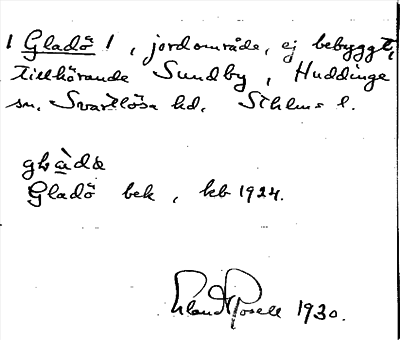 1 Gladö 1, jordområde, ej bebyggt,
tillhörande Sundby, Huddinge
sn. Svartlösa hd. Sthlms l.
Gladö bek, kb 1924.
Rosell 1930.